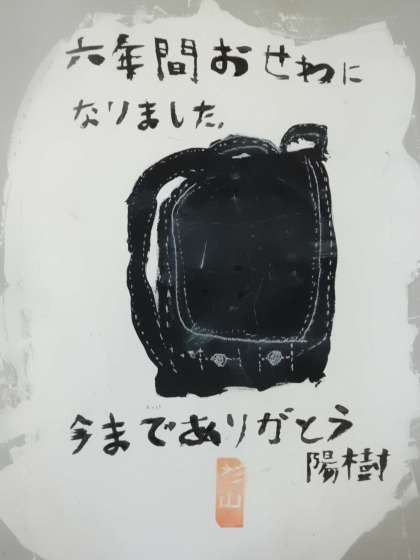 六年間おせわに
なりました。
今までありがとう
陽樹
杉山